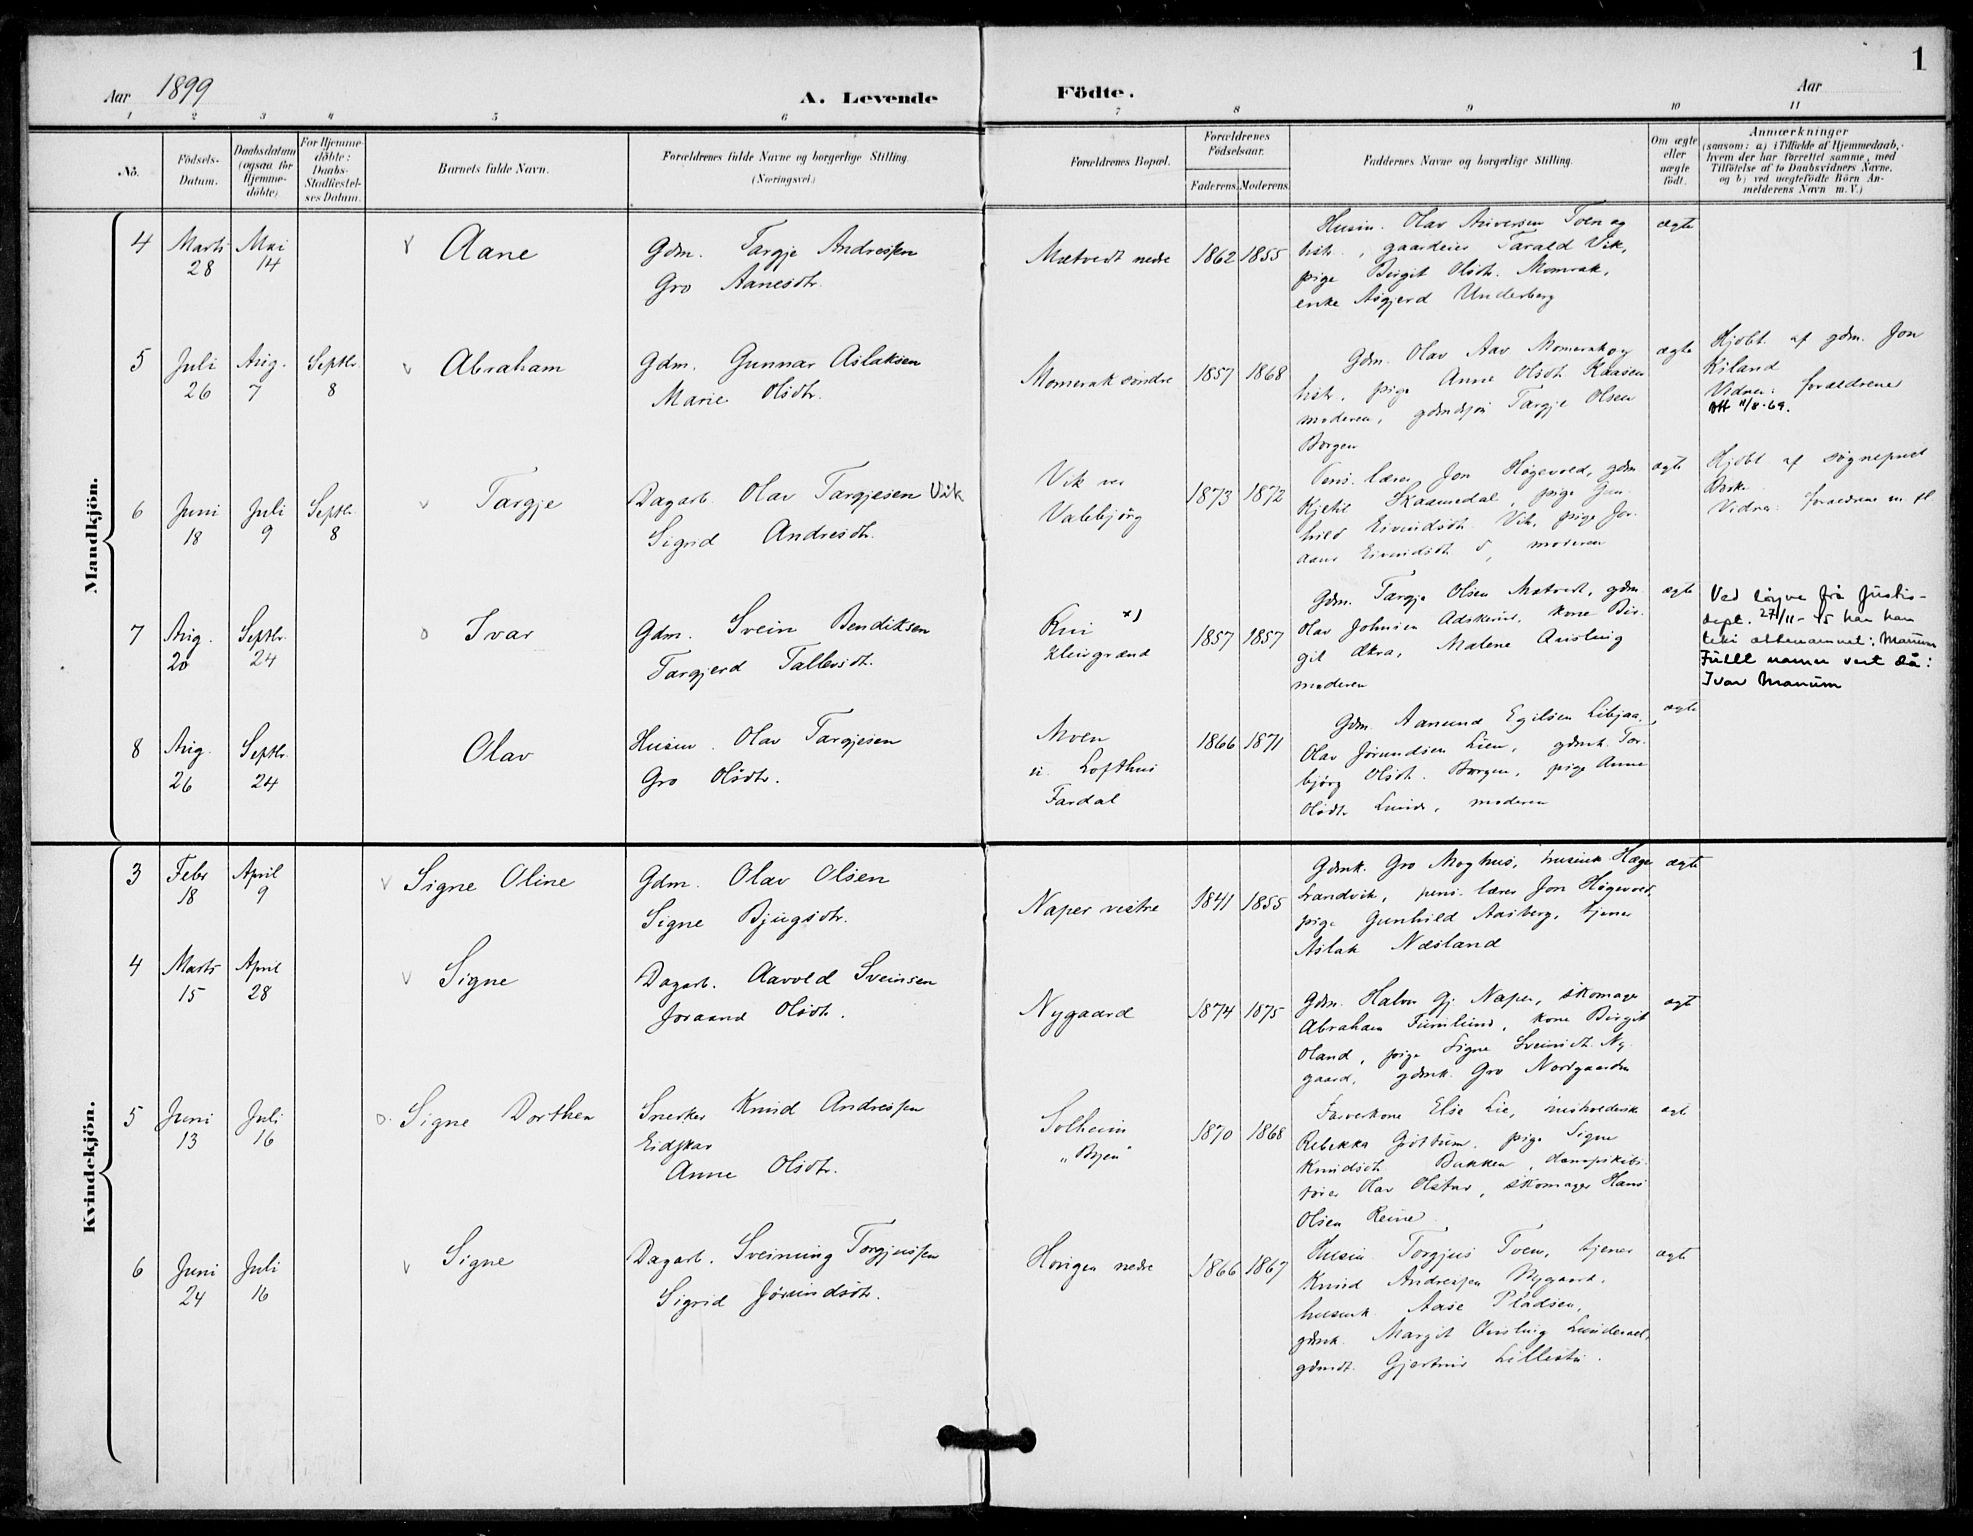 1
Aar 1899
A. Levende
Födte.
Aar
1 2 3 4 5 6 7 8 9 10 11
No.
Födsels-
Datum.
Daabsdatum
(ogsaa for
Hjemme-
döbte)
For Hjemme-
döbte:
Daabs-
Stadfæstel-
ses Datum.
Barnets fulde Navn.
Forældrenes fulde Navne og borgerlige Stilling.
(Næringsvei.)
Forældrenes Bopæl.
Forældrenes
Födselsaar.
Faderens. Moderens.
Faddernes Navne og borgerlige Stilling.
Om ægte
eller
uægte
födt.
Anmærkninger
(saasom: a) i Tilfælde af Hjemmedaab,
hvem der har forrettet samme, med
Tilföielse af to Daabsvidners Navne,
og b) ved uægtefödte Börn An-
melderens Navn m. V.)
Mandkjön.
4 Marts 28 Mai 14 Aane
Gdm. Targje Andressen
Gro Aanesdtr.
Mætvedt nedre 1862 1855
Husm. Olav Toen og
hstr., gaardeier Tarald Vik,
pige Birgit Olsdtr. Momrak,
enke Asgjerd Underberg
ægte
5 Juli 26 Aug. 7 Septbr 8 Abraham
Gdm. Gunnar Aslaksen
Marie Olsdtr.
Momrak söndre 1857 1868
Gdm. Olav Aav Momrak og
hstr, pige Anne Olsdtr Kaasen
moderen, Targje Olsen
Borgen
ægte
Hjdbt. af gdm. Jon
Kiland
Vidner: forældrene
11/8-69.
6 Juni 18 Juli 9 Septbr. 8 Targje
Dagarb. Olav Targjesen Vik
Sigrid Andresdtr.
Vik
Valebjörg
1873 1872
Pens. lærer Jon Høgevold, gdm
Kjetil Skaamedal, pige Gun-
hild Eivindsdtr. Vik, pige Jor-
aand Eivindsdtr, moderen
ægte
Hjdbt af sognepræst
Vidner: forældrene
7 Aug. 20 Septbr. 24 Ivar
Gdm. Svein Bendiksen
Targjerd Tallevsdtr.
x)
Kleivgrend
1857 1857
Gdm. Targje Olsen Mætvedt, gdm
Olav Johnsen, kone Bir-
git Økra, Malene Ausland
moderen
ægte
Ved løyve frå Justis-
dept. 27/11-45 har han
teki ættenamnet: Manum
Fullt namn vert då:
Ivar Manum
8 Aug. 26 Septbr. 24 Olav
Husm. Olav Targjesen
Gro Olsdtr.
Moen
u. Lofthus
Fardal
1866 1871
Gdm. Aanund Egilsen Libjaa,
Olav Jørundsen Lien, gdmk. Tor-
bjørg Olsdt. Borgen, pige Anne
Olsdtr Lunde, moderen
ægte
Kvindekjön.
3 Febr 18 April 9 Signe Oline
Gdm. Olav Olsen
Signe Bjugsdtr.
Naper vestre 1841 1855
Gdmk. Gro Moghus, husmk Hæge
Sandvik, pens. lærer Jon Høgevold,
pige Gunhild Aasberg, tjener
Aslak Næsland
ægte
4 Marts 15 April 28 Signe
Dagarb. Aavold Sveinsen
Joraand Olsdtr.
Nygaard 1874 1875
Gdm. Halvor Gj. Naper, skomager
Abraham Furulund, kone Birgit
Oland, pige Signe Sveinsdt. Ny-
gaard, gdmk. Gro Nordgaarden
ægte
5 Juni 13 Juli 16 Signe Dorthea
Snekker Knud Andressen
Eidskar
Anne Olsdtr.
Solheim
"Byen"
1870 1868
Farverkone Else Lie,
Rebekka Gottum, pige Signe
Knudsdtr Bakken, dampskibs-
fører Olav Olstad, skomager Hans
Olsen Reine
ægte
6 Juni 24 Juli 16 Signe
Dagarb. Sveinung Torgjussen
Sigrid Jörundsdtr.
Hovigen nedre 1866 1867
Husm. Torgjus Tveen, tjener
Knud Andressen Nygaard,
husmk. Aase Pladsen,
gdmk. Margit
gdmdt. Lillestu.
ægte